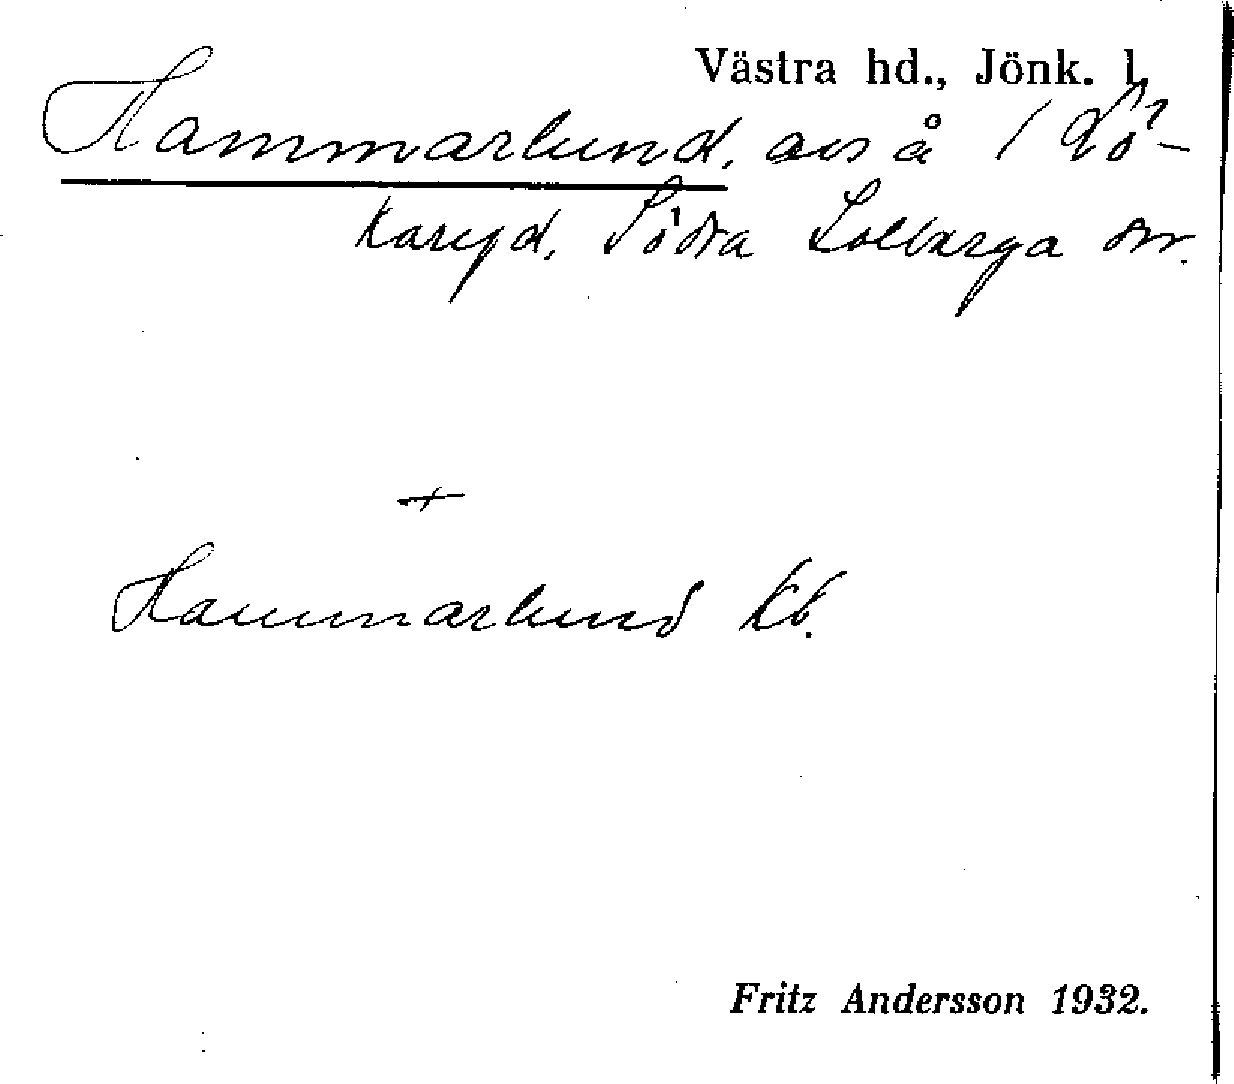 Västra hd., Jönk. l.
Hammarlund, avs å 1 Lö-
karyd, Södra Solberga sn.
+
Hammarlund kb.
Fritz Andersson 1932.